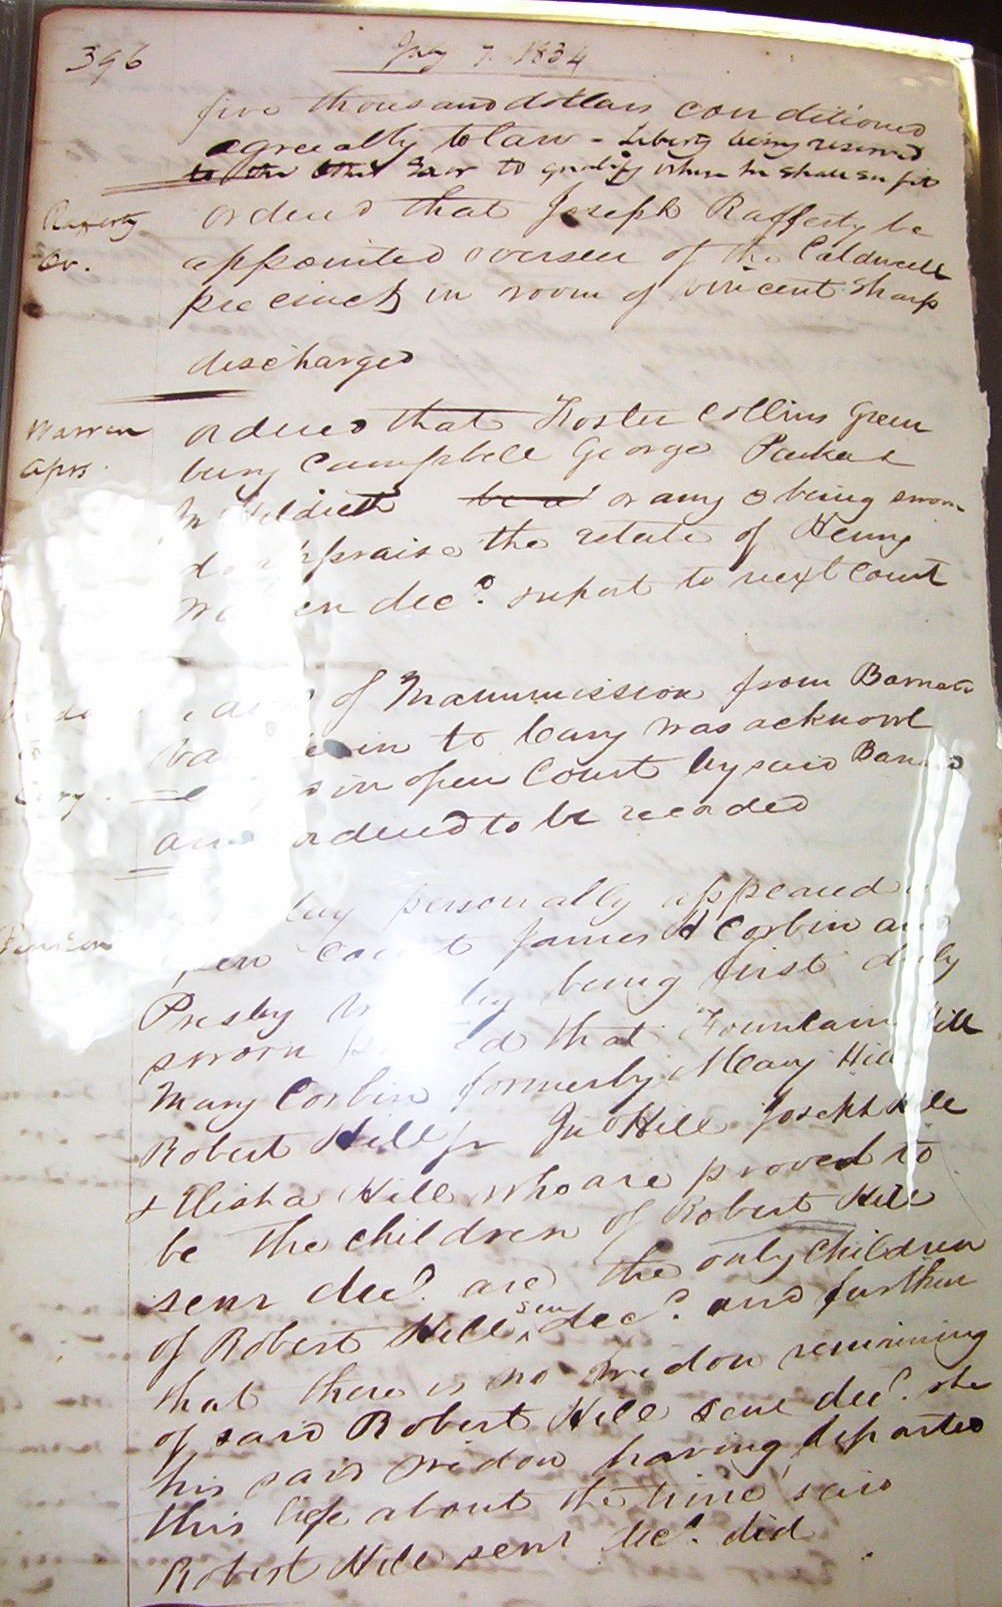 396
7 1834
five thousand dollars conditioned
agreeably to law - Liberty being reserved
to the other Exor to qualify when he shall so fit
Rafferty
Ov.
ordered that Joseph Rafferty be
appointed overseer of the Caldwell
precinct in room of vincent Sharp
discharged
Warren
aprs.
ordered that Foster Collins Green
bury Campbell George
be a or any 3 being sworn
appraise the estate of Henry
dec.d report to next Court
of Manumission from Barnett
in to Cary was acknowl
in open Court by said
ordered to be recorded
personally appeared
Court James H Corbin and
Presley being first duly
sworn that Fountain Hill
Mary Corbin formerly Mary Hill
Robert Hill jr Jno Hill Joseph Hill
& Elisha Hill who are proved to
be the children of Robert Hill
senr dec.d are the only children
of Robert Hill senr dec.d and further
that there is no widow remaining
of said Robert Hill senr dec.d she
his said widow having departed
this life about the time said
Robert Hill senr dec.d did